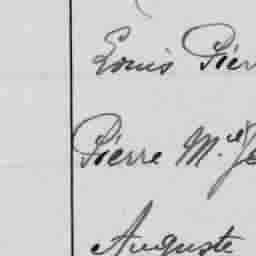 Louis Pierr
Pierre M.ie Je
Auguste